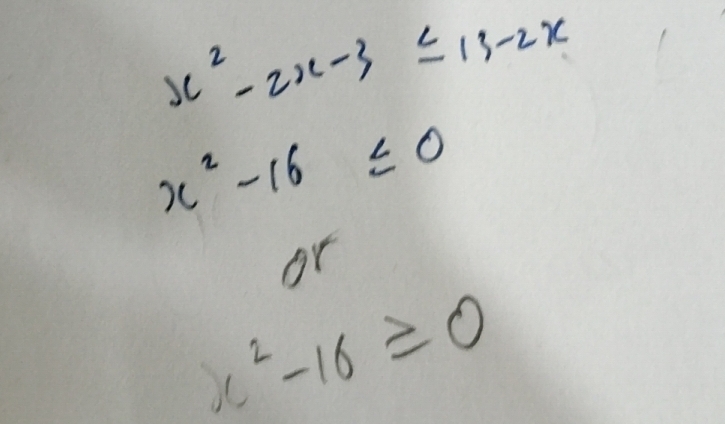 x² - 2x - 3 ≤ 13 - 2x
x² - 16 ≤ 0
or
x² - 16 ≥ 0